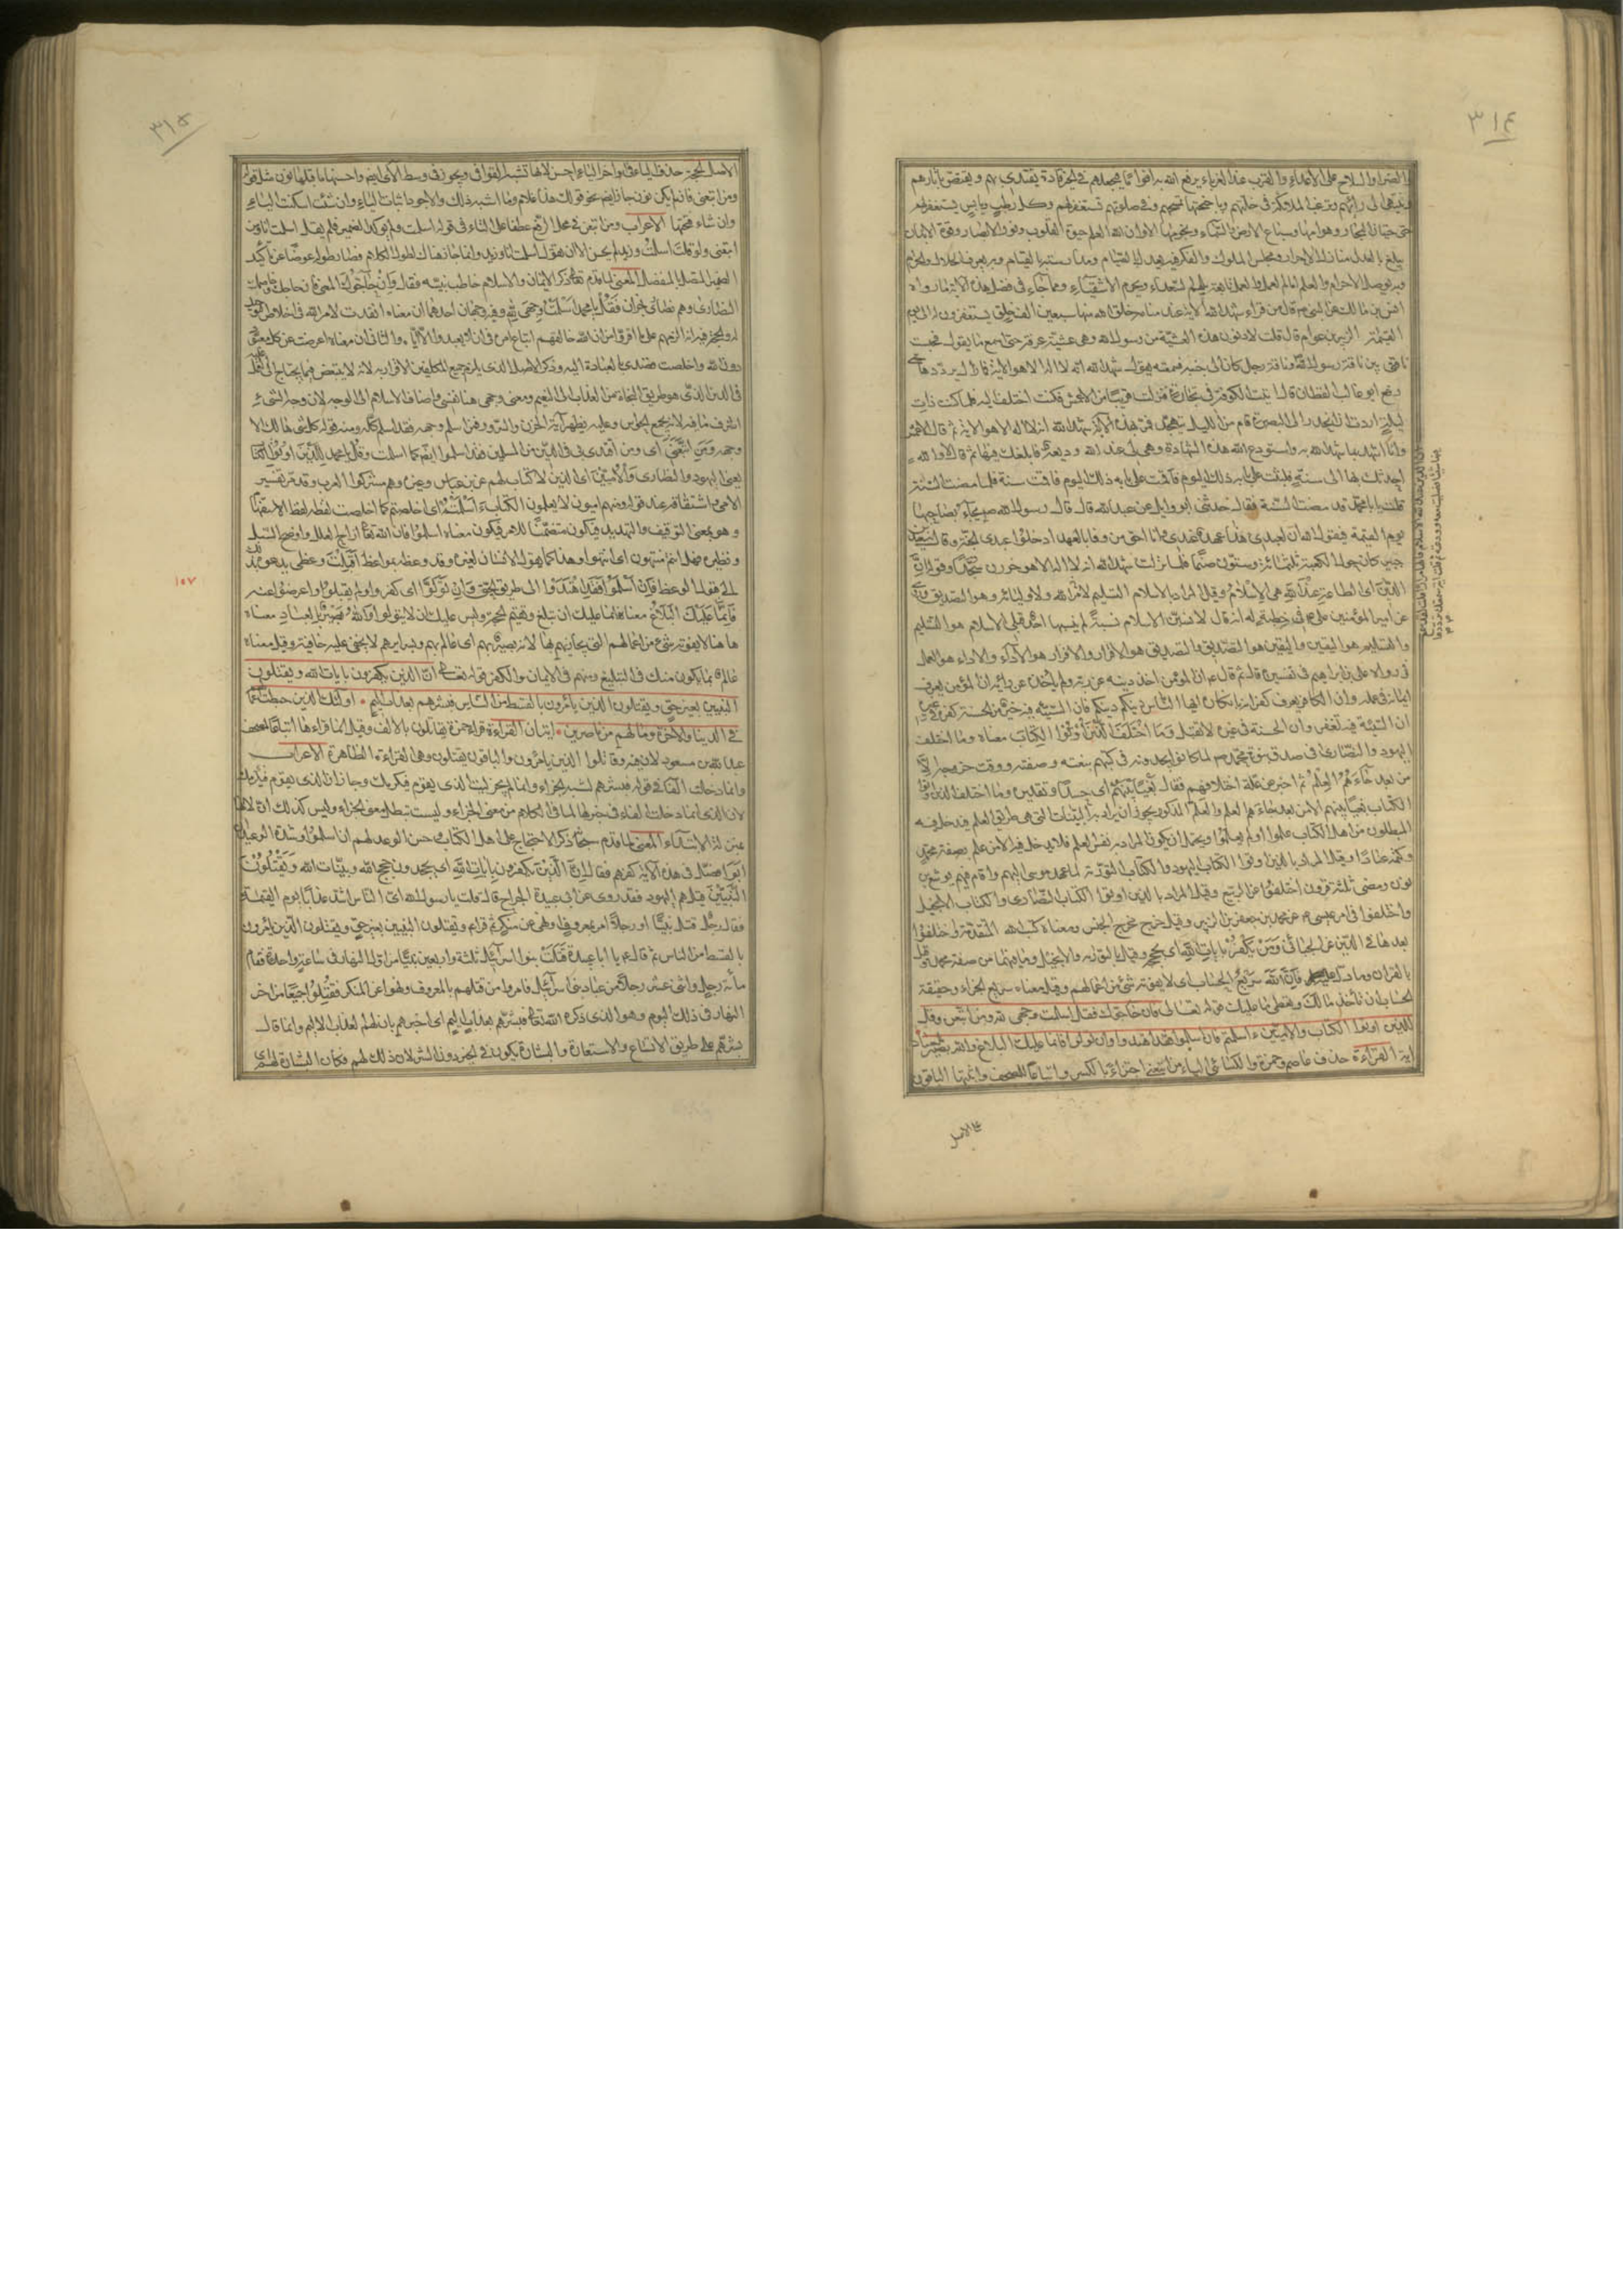 ٣١٤
والضراء والسلاح على الاعداء والقرب عند الغرباء يرفع الله به اقواما فيجعلهم في الخير قادة يقتدى بهم ويقتص آثارهم
وينتهى الى رأيهم وترغب الملائكة في خلتهم وباجنحتها تمسحهم وفي صلوتهم تستغفر لهم وكل رطب ويابس يستغفر لهم
حتى حيتان البحار وهوامها وسباع الارض والسماء ونجومها الا وان العلم حيوة القلوب ونور الابصار وقوة الابدان
يبلغ بالعبد منازل الاحرار ومجلس الملوك والفكر فيه يعدل بالصيام ومدارسته بالقيام وبه يعرف الحلال والحرام
وبه توصل الارحام والعلم امام العمل والعمل تابعه يلهم السعداء ويحرم الاشقياء ومما جاء في فضل هذه الاية ما رواه
انس بن مالك عن النبي ص قال من قراء شهد الله الاية عند منامه خلق الله منها سبعين الف خلق يستغفرون له الى يوم
القيمة الزبير بن عوام قال قلت لادنون هذه العشية من رسول الله وهي عشية عرفة حتى اسمع ما يقوله فحبست
ناقتي بين ناقة رسول الله وناقة رجل كان الى جنبه فسمعته يقول شهد الله انه لا اله الا هو الاية فما زال يرددها حتى
رفع ابو غالب القطان قال اتيت الكوفة في تجارة فنزلت قريبا من الاعمش فكنت اختلف اليه فلما كنت ذات
ليلة اردت ان انحدر الى البصرة قام من الليل يتهجد فمر بهذه الاية شهد الله انه لا اله الا هو الاية ثم قال الاعمش
وانا اشهد بما شهد الله به واستودع الله هذه الشهادة وهي لي عند الله وديعة قالها
احدثك بها الى سنة فلبثت على بابه ذلك اليوم فاقمت سنة فلما مضت السنة
قلت يا ابا محمد قد مضت السنة فقال حدثني ابو وايل عن عبد الله قال قال رسول الله ص يجاء بصاحبها
يوم القيمة فيقول الله ان لعبدى هذا عهدا عندى وانا احق من وفا بالعهد ادخلوا عبدى الجنة وقال سعيد بن
جبير كان حول الكعبة ثلثمائة وستون صنما فلما نزلت شهد الله انه لا اله الا هو خررن سجدا وقوله ان
الدين اى الطاعة عند الله هى الاسلام وقيل المراد بالاسلام التسليم لامر الله ولاوليائه وهو التصديق
عن امير المؤمنين على ع في خطبة له انه قال لانسبن الاسلام نسبة لم ينسبها احد قبلى الاسلام هو التسليم
والتسليم هو اليقين واليقين هو التصديق والتصديق هو الاقرار والاقرار هو الاداء والاداء هو العمل
رواه على بن ابراهيم في تفسيره قال ثم قال ع ان المؤمن اخذ دينه عن ربه ولم يأخذه عن رأيه ان المؤمن يعرف
ايمانه في عمله وان الكافر يعرف كفره بانكاره ايها الناس دينكم دينكم فان السيئة فيه خير من الحسنة في غيره
ان السيئة فيه تغفر وان الحسنة في غيره لا تقبل وما اختلف الذين اوتوا الكتاب معناه وما اختلف
اليهود والنصارى في صدق نبوة محمد ص لما كانوا يجدونه في كتبهم بنعته وصفته ووقت خروجه الا
من بعد ما جاءهم العلم ثم اخبر عن علة اختلافهم فقال بغيا بينهم اى حسدا وتقديره وما اختلف الذين اوتوا
الكتاب بغيا بينهم الا من بعد ما جاءهم العلم والعلم المذكور يجوز ان يراد به البينات التي هي طريق العلم فيدخل فيه
المبطلون من اهل الكتاب علموا او لم يعلموا ويحتمل ان يكون المراد به نفس العلم فلا يدخل فيه الا من علم بصفة محمد
وكتمه عنادا وقيل المراد بالذين اوتوا الكتاب اليهود والكتاب التورية لما عهد موسى اليهم واقام فيهم يوشع بن
نون ومضى ثلثة قرون اختلفوا عن الربيع وقيل المراد بالذين اوتوا الكتاب النصارى والكتاب الانجيل
واختلفوا في امر عيسى ع عن محمد بن جعفر بن الزبير وقيل خرج مخرج الجنس ومعناه كتب الله المتقدمة واختلفوا
بعدها في الدين عن الجبائى ومن يكفر بايات الله اى بحججه وقيل بالتورية والانجيل وما فيهما من صفة محمد وقيل
بالقران وما دل عليه فان الله سريع الحساب اى لا يفوته شئ من اعمالهم وقيل معناه سريع الجزاء وحقيقة
الحساب ان تأخذ مالك وتعطى ما عليك قوله تعالى فان حاجوك فقل اسلمت وجهى لله ومن اتبعن وقل
للذين اوتوا الكتاب والاميين ءاسلمتم فان اسلموا فقد اهتدوا وان تولوا فانما عليك البلاغ والله بصير بالعباد
اية القراءة حذف عاصم وحمزة والكسائى الياء من اتبعنى اجتزاء بالكسر واتباعا للمصحف واثبتها الباقون
على الاصل
٣١٥
الاصل الحجة حذف الياء في اواخر الاى احسن لانها تشبه القوافى ويجوز في وسط الآى ايضا واحسنها ما قبلها نون مثل قوله
ومن اتبعن فان لم يكن نون جاز ايضا نحو قولك هذا غلام وما اشبه ذلك والاجود اثبات الياء وان شئت اسكنت الياء
وان شاء فتحتها الاعراب ومن اتبعن في محل الرفع عطفا على التاء في قوله اسلمت ولم يؤكد الضمير فلم يقل اسلمت انا ومن
اتبعنى ولو قلت اسلمت وزيد لم يحسن الا ان تقول اسلمت انا وزيد وانما جاز هنا لطول الكلام فصار طوله عوضا عن تأكيد
الضمير المتصل بالمنفصل المعنى لما قدم تعالى ذكر الايمان والاسلام خاطب نبيه فقال فان حاجوك المعنى فان حاجك وخاصمك
النصارى وهم نصارى نجران فقل يا محمد اسلمت وجهى لله وفيه وجهان احدهما ان معناه انقدت لامر الله في اخلاص التوحيد
له والحجة فيه انه الزمهم على ما اقروا من ان الله خالقهم اتباع امره في ان لا يعبد الا اياه والثانى ان معناه اعرضت عن كل معبود
دون الله واخلصت قصدى بالعبادة اليه وذكر الاصل الذى يلزم جميع المكلفين الاقرار به لانه لا ينتقض فيما يحتاج الى العمل عليه
في الدين الذى هو طريق النجاة من العذاب الى النعيم ومعنى وجهى هنا نفسى واضاف الاسلام الى الوجه لان وجه الشئ
اشرف ما فيه لانه يجمع الحواس وعليه يظهر آية الحزن والسرور فمن اسلم وجهه فقد اسلم كله ومنه قوله كل شئ هالك الا
وجهه ومن اتبعن اى ومن اقتدى بى في الدين من المسلمين فقد اسلموا ايضا كما اسلمت وقل يا محمد للذين اوتوا الكتاب
يعنى اليهود والنصارى والاميين اى الذين لا كتاب لهم عن ابن عباس وغيره وهم مشركوا العرب وقد مر تفسير
الامى واشتقاقه عند قوله ومنهم اميون لا يعلمون الكتاب ءاسلمتم اى اخلصتم كما اخلصت لفظه لفظ الاستفهام
وهو بمعنى التوقيف والتهديد فيكون متضمنا للامر فيكون معناه اسلموا فان الله تعالى ازاح العلل واوضح السبل
ونظيره فهل انتم منتهون اى انتهوا وهذا كما يقول الانسان لغيره وقد وعظه بمواعظ أقبلت وعظى يدعوه بذلك
الى قبول الوعظ فان اسلموا فقد اهتدوا الى طريق الحق وان تولوا اى كفروا ولم يقبلوا واعرضوا عنه
فانما عليك البلاغ معناه فانما عليك ان تبلغ وتقيم الحجة وليس عليك ان لا يتولوا والله بصير بالعباد معناه
هاهنا لا يفوته شئ من اعمالهم التي يجازيهم بها لانه بصير بهم اى عالم بهم وبسرايرهم لا يخفى عليه خافية وقيل معناه
عالم بما يكون منك في التبليغ ومنهم في الايمان والكفر قوله تعالى ان الذين يكفرون بايات الله ويقتلون
النبيين بغير حق ويقتلون الذين يأمرون بالقسط من الناس فبشرهم بعذاب اليم • اولئك الذين حبطت اعمالهم
في الدنيا والآخرة وما لهم من ناصرين • ايتان القراءة قرأ حمزة يقاتلون بالالف وقيل انما قراءها اتباعا لمصحف
عبد الله بن مسعود لان فيه وقاتلوا الذين يأمرون والباقون يقتلون وهي القراءة الظاهرة الاعراب
وانما دخلت الفاء في قوله فبشرهم لشبه الجزاء وانما لم يجز ليت الذى يقوم فيكرمك وجاز ان الذى يقوم فيكرمك
لان الذى انما دخلت الفاء في خبرها لما في الكلام من معنى الجزاء وليت تبطل معنى الجزاء وليس كذلك ان لانها
بمنزلة الابتداء المعنى لما قدم سبحانه ذكر الاحتجاج على اهل الكتاب وحسن الوعد لهم ان اسلموا وشدة الوعيد
ان ابوا فصل في هذه الآية كفرهم فقال ان الذين يكفرون بايات الله اى يجحدون حجج الله وبيناته ويقتلون
النبيين قيل هم اليهود فقد روى عن ابى عبيدة الجراح قال قلت يا رسول الله اى الناس اشد عذابا يوم القيمة
فقال رجل قتل نبيا او رجلا امر بمعروف او نهى عن منكر ثم قراء ويقتلون النبيين بغير حق ويقتلون الذين يأمرون
بالقسط من الناس ثم قال ع يا ابا عبيدة قتلت بنو اسرآئيل ثلثة واربعين نبيا من اول النهار في ساعة واحدة فقام
مأة رجل واثنى عشر رجلا من عباد بنى اسرآئيل فامروا من قتلهم بالمعروف ونهوا عن المنكر فقتلوا جميعا من آخر
النهار في ذلك اليوم وهو الذى ذكره الله تعالى فبشرهم بعذاب اليم اى اخبرهم بان لهم العذاب الاليم وانما قال
بشرهم على طريق الاتساع والاستعارة والبشارة يكون في الخير دون الشر لان ذلك لهم مكان البشارة للمؤمنين
١٥٧